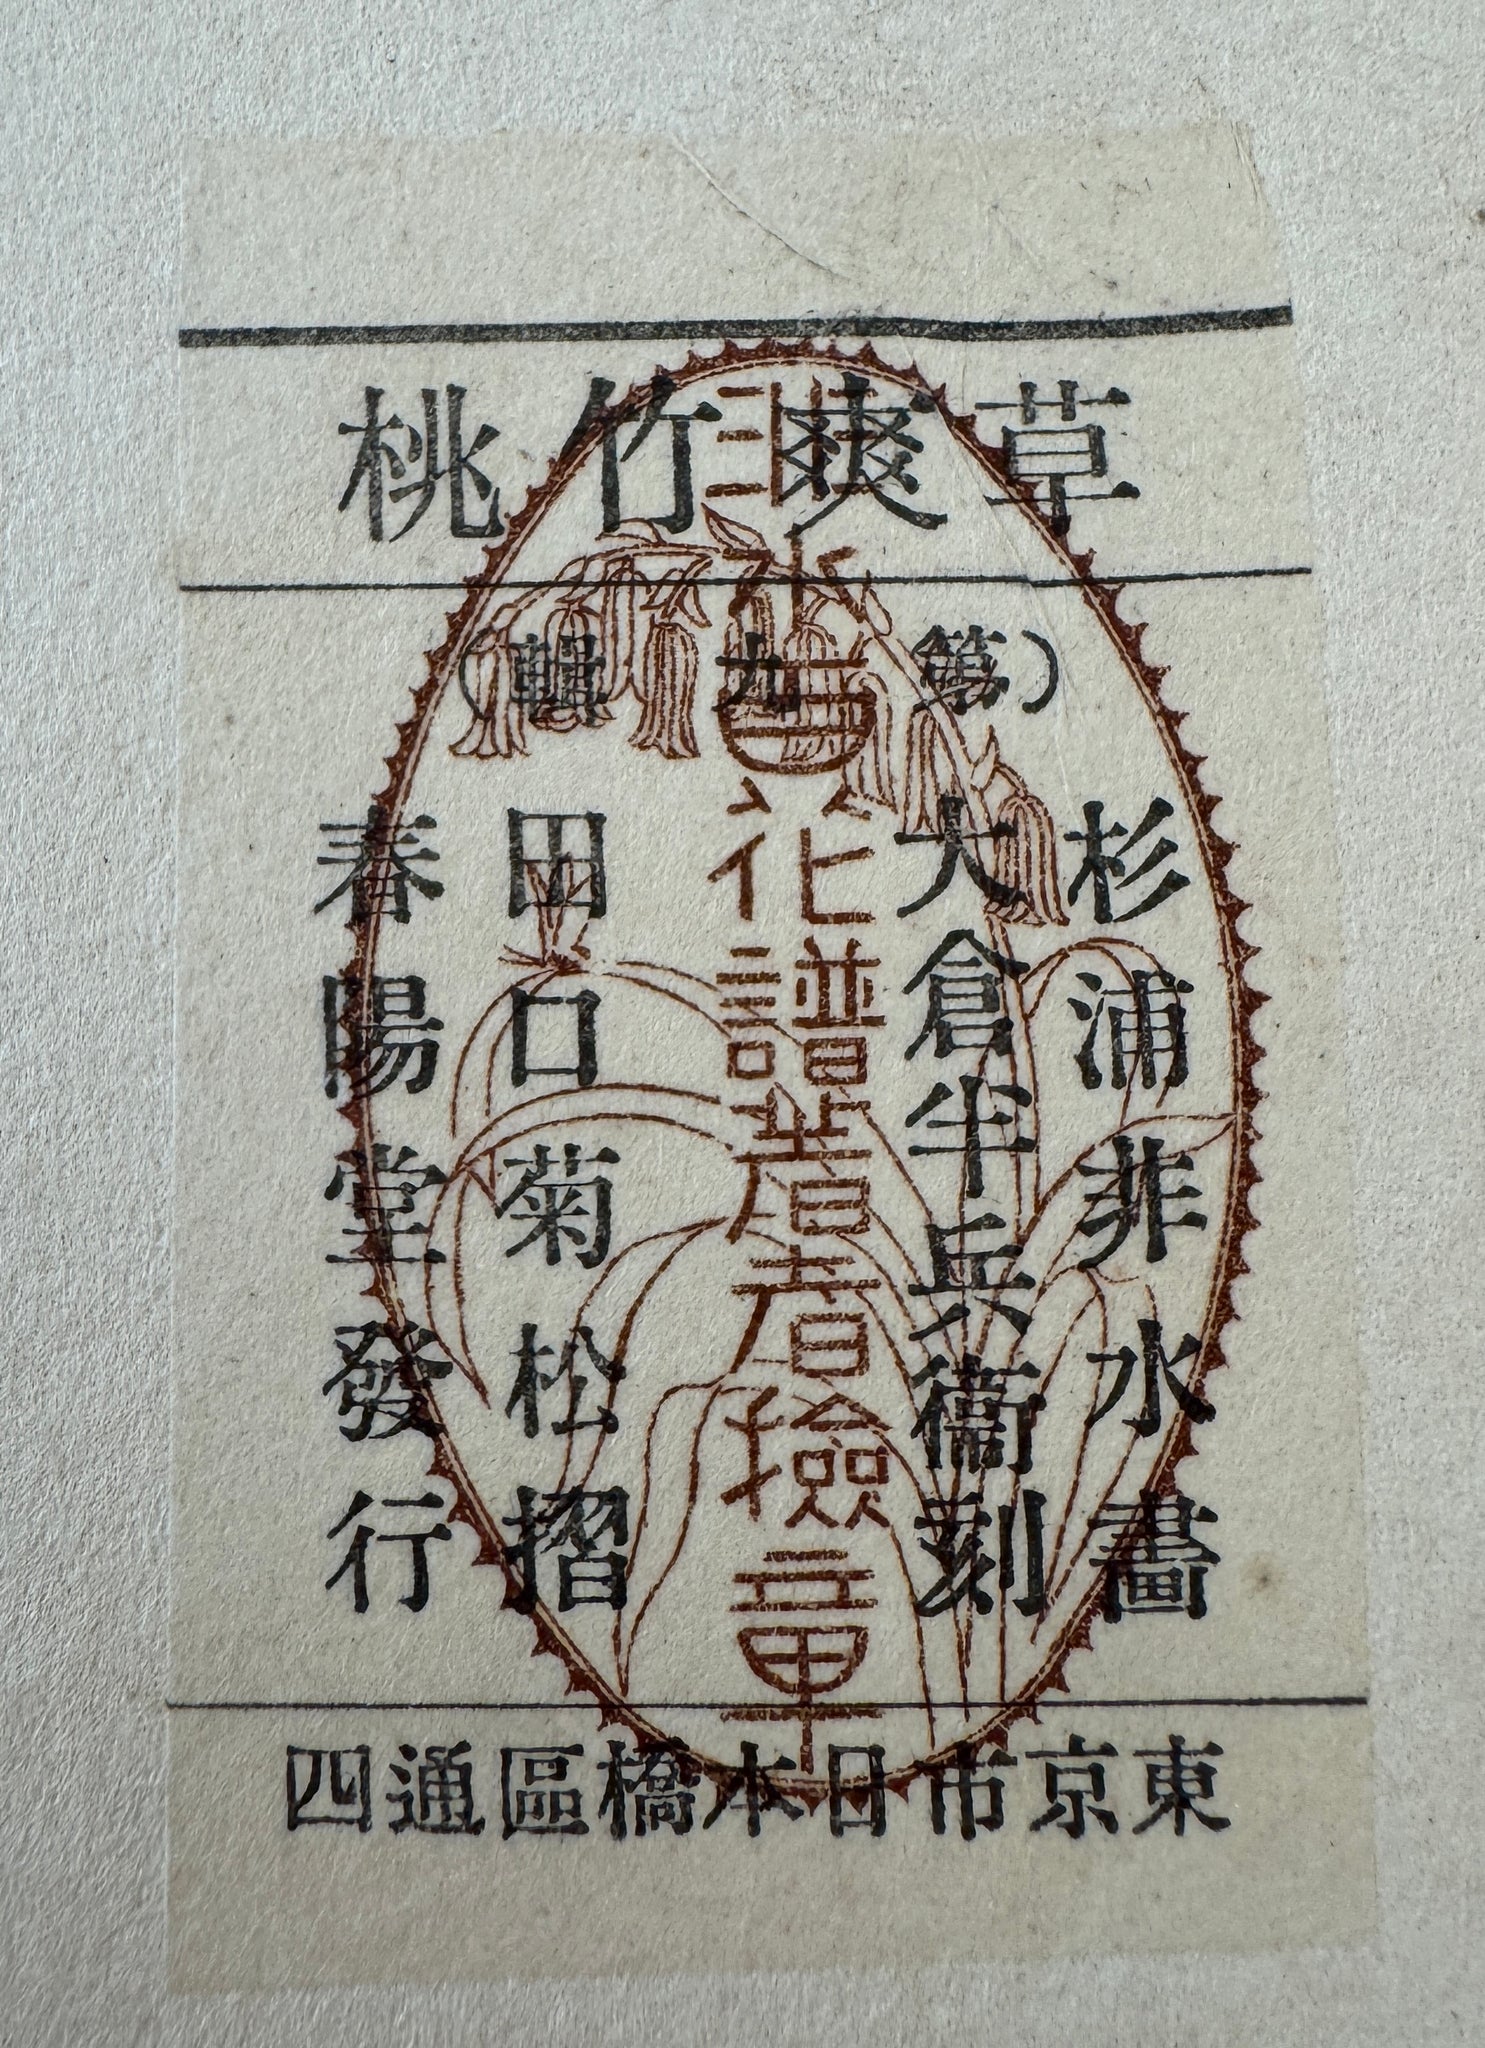 草爽竹桃
(第九輯)
杉浦非水畫
大倉半兵衞刻
非水百花譜著者撿章
田口菊松摺
春陽堂發行
東京市日本橋區通四